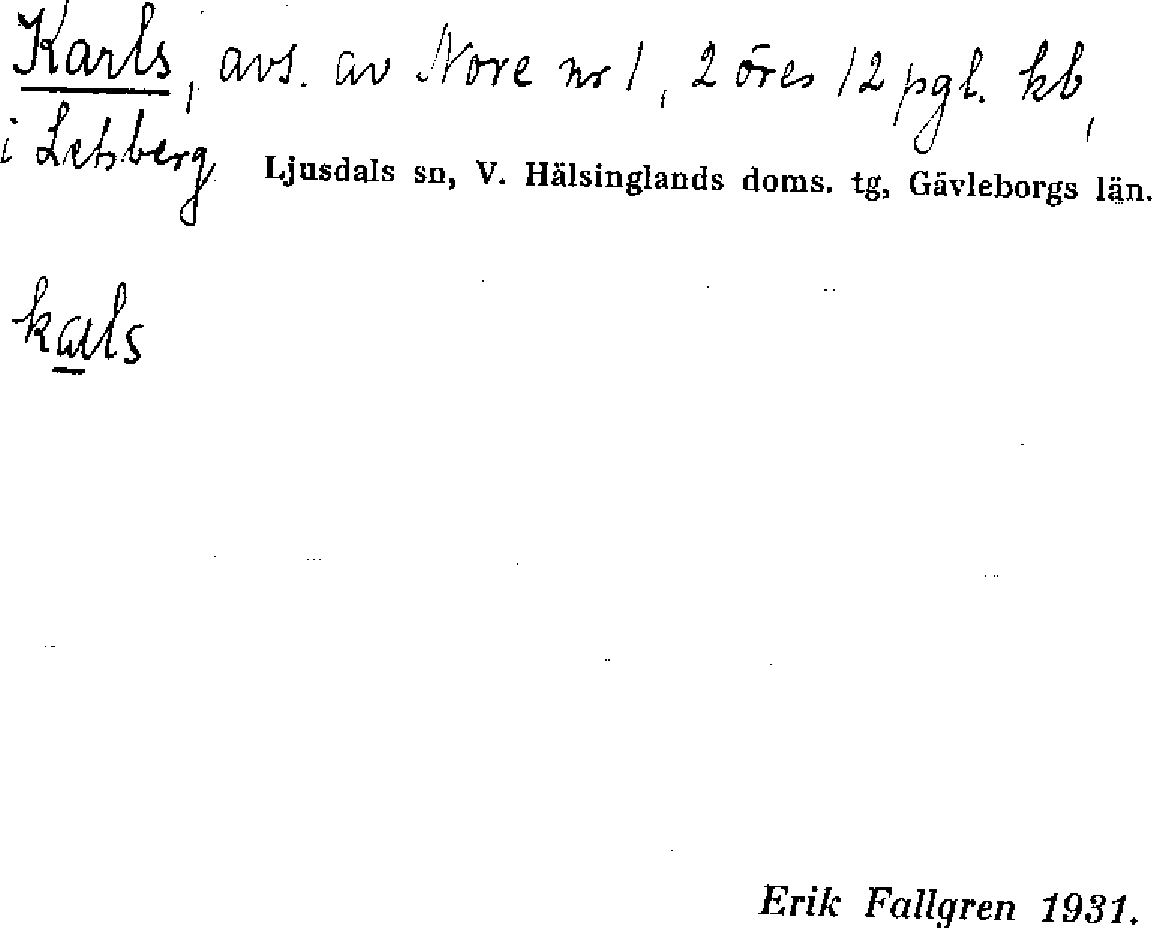 Karls, avs. av Nore nr 1, 2 öres 12 pgl. kb,
i Letsberg Ljusdals sn, V. Hälsinglands doms. tg, Gävleborgs län.
kals
Erik Fallgren 1931.